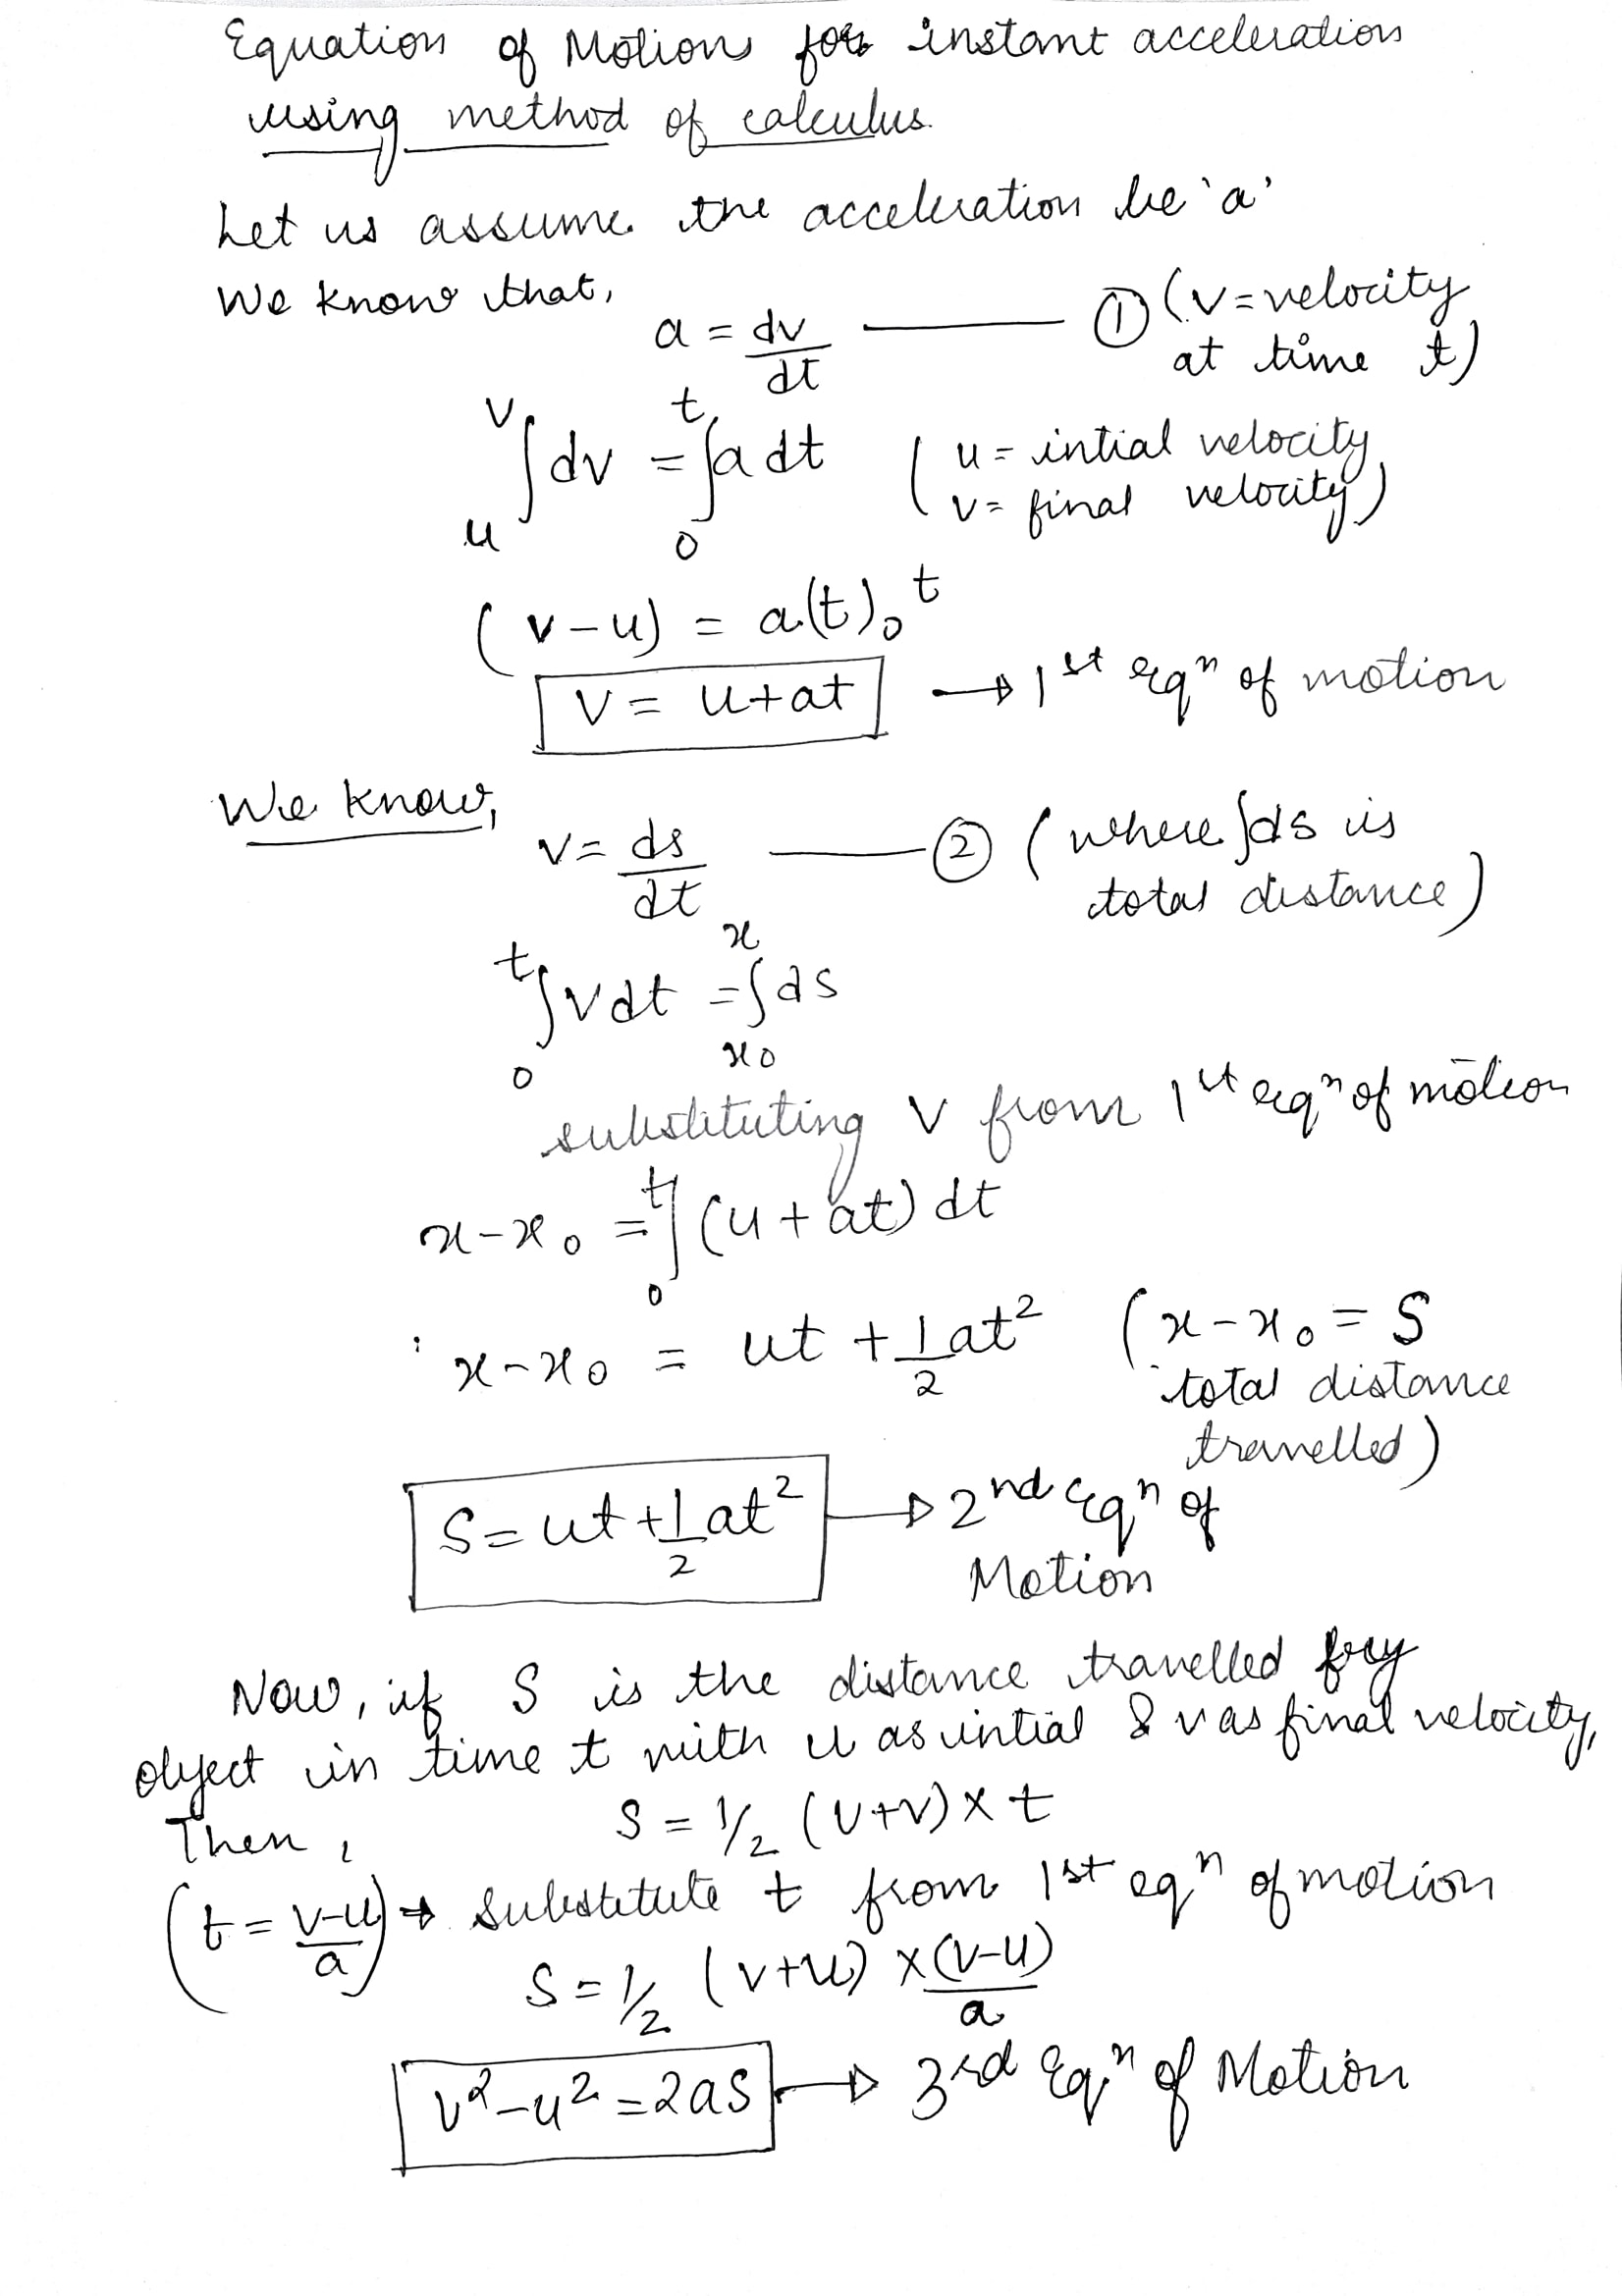 Equation of Motions for instant acceleration
using method of calculus.
Let us assume. the acceleration be 'a'
We know that,
a = dv/dt ——— ① (v = velocity
at time t)
∫_u^v dv = ∫_0^t a dt ( u = intial velocity,
v = final velocity)
(v-u) = a(t)_0^t
v = u+at → 1st eqn of motion
We know,
v = ds/dt ——— ② (where ∫ds is
total distance)
∫_0^t v dt = ∫_x0^x ds
substituting v from 1st eqn of motion
x-x0 = ∫_0^t (u + at) dt
x-x0 = ut + 1/2 at² (x-x0 = S
total distance
travelled)
S = ut + 1/2 at² → 2nd Eqn of
Motion
Now, if S is the distance travelled
object in time t with u as intial & v as final velocity,
Then, S = 1/2 (U+V) x t
(t = v-u/a) → substitute t from 1st eqn of motion
S = 1/2 (v+u) x (v-u)/a
v²-u² = 2aS → 3rd Eqn of Motion